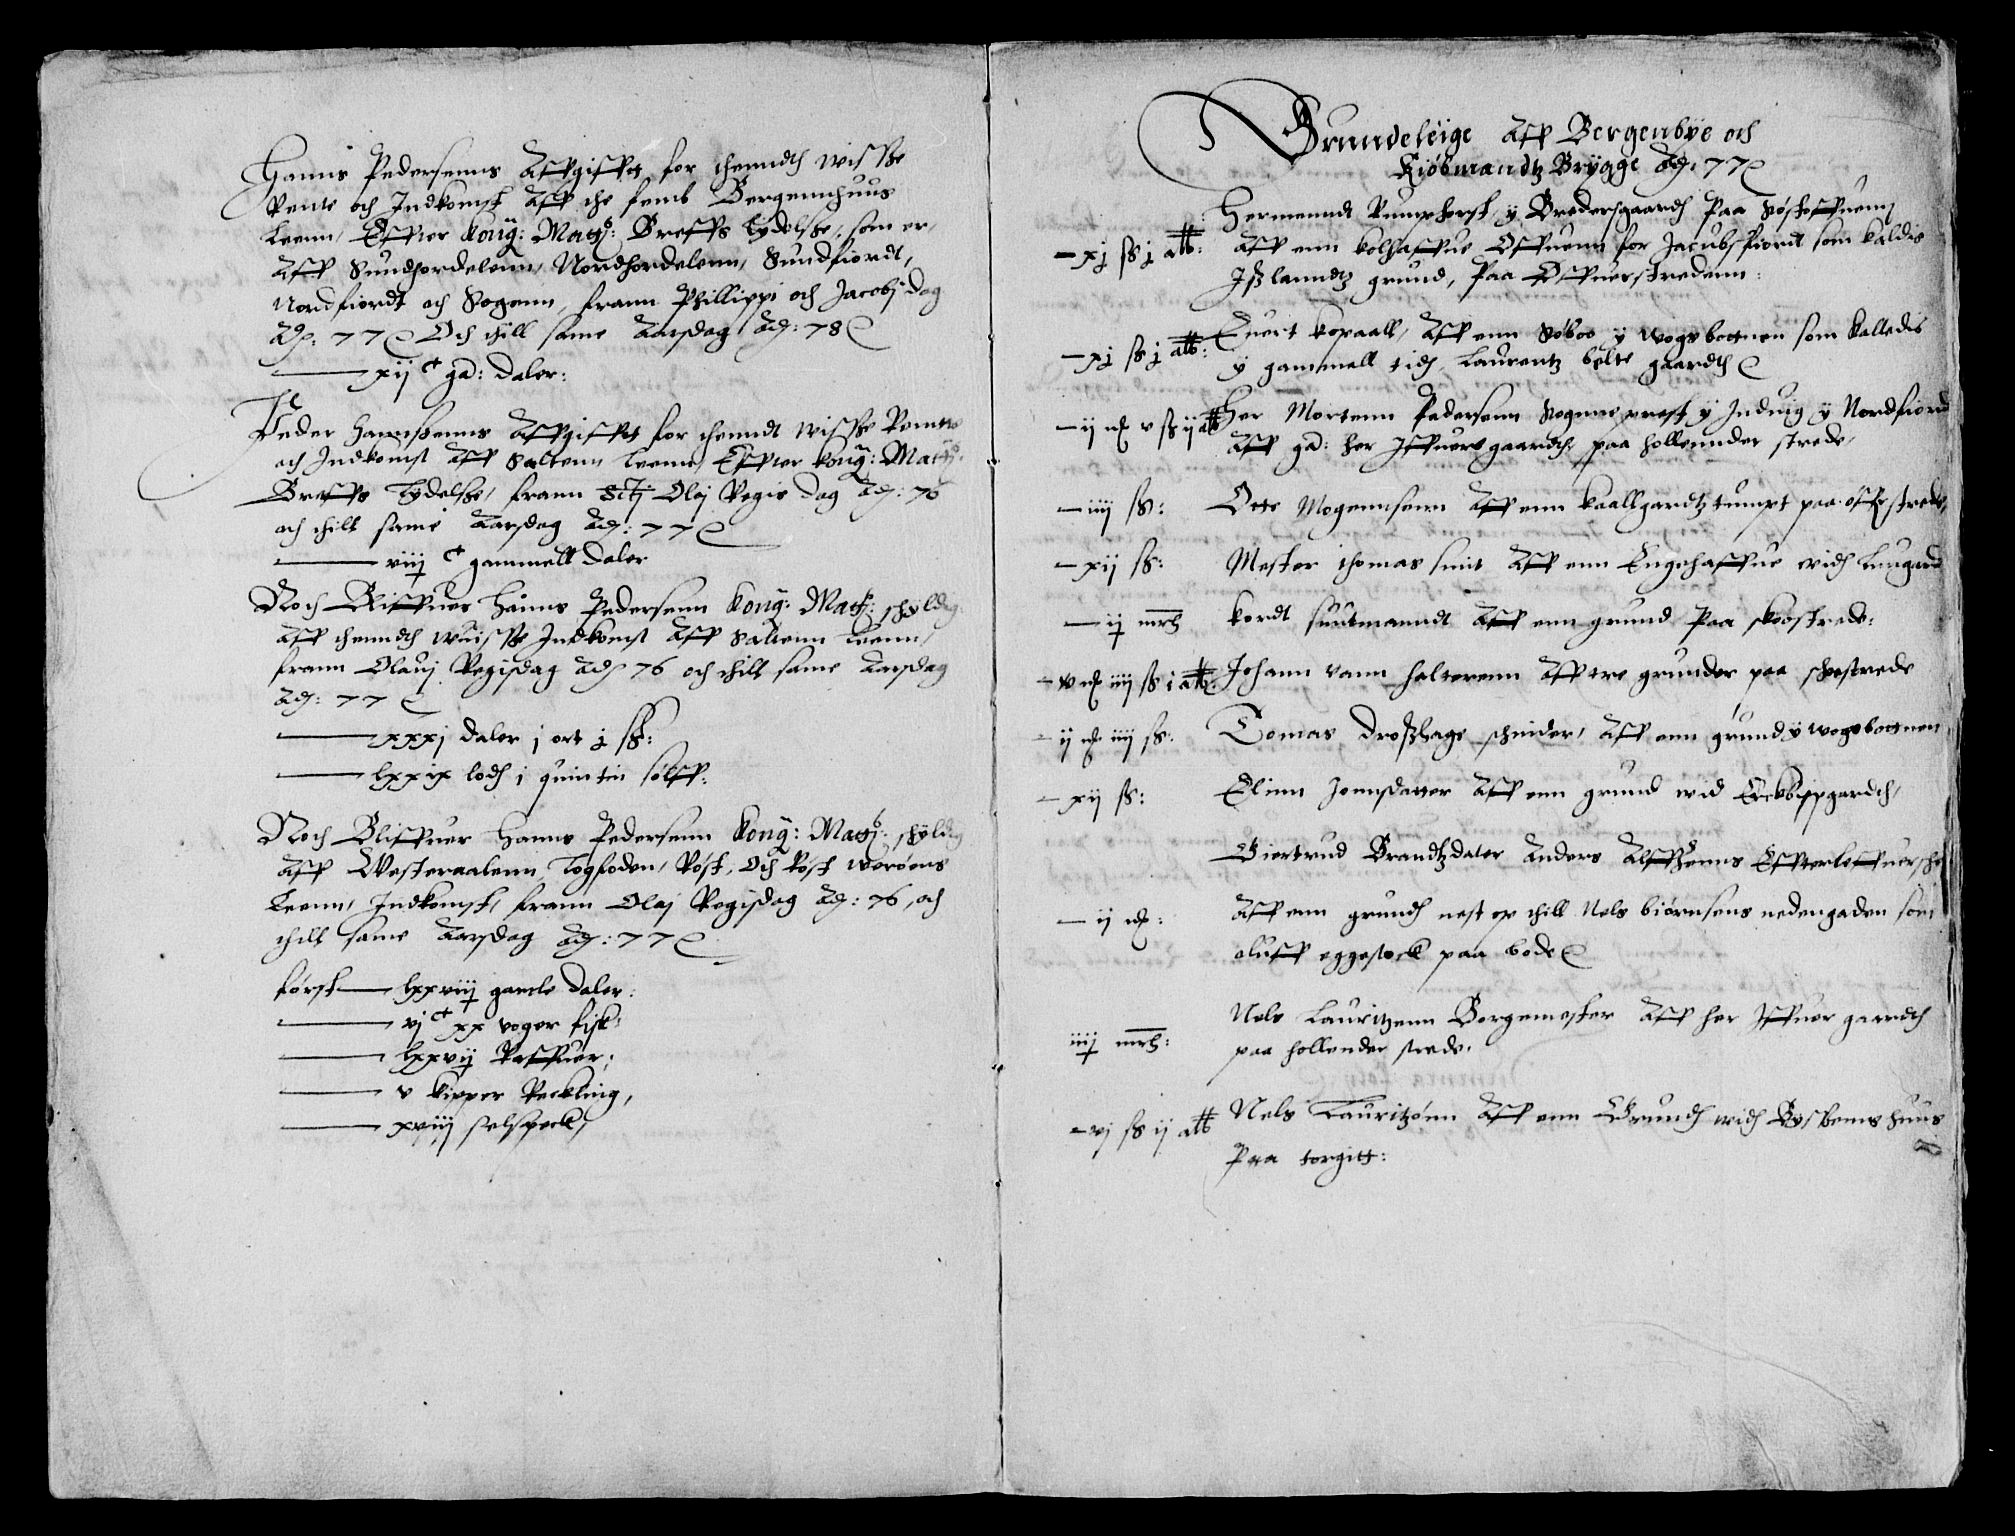 Hanns Pedersenns Affgifft for thenndh wisße
Rente och Indkomst Aff the femb Bergennhuus
Leenn, Effter Kong: Matts: Breffs lydelße, som er
Aff Sundhordelenn, Nordhordelenn, Sundfiordt,
Nordfiordt och Sogenn, frann Phillippi och Jacobj dag
Ad: 77 Och thill same Aarsdag Ad: 78
xij c gd: daler:
Peder Hannßenns Affgifft for thenndt wisße Rente
och Indkomst Aff Saltenn Leenn, Effter Kong: Matts:
Breffs lydelße, frann Scti Olaj Regis dag Ad: 76
och thill same Aarsdag Ad: 77
viij c gammell daler
Noch Bliffuer Hanns Pedersenn Kong: Matts: schyldig
Aff thenndh wuisße Indkomst Aff Saltenn Leenn,
frann Olauj Regisdag Ad 76 och thill same Aarsdag
Ad: 77
xxxj daler j ort j ß:
lxxix lodh i quintin sølff:
Noch Bliffuer Hanns Pedersenn Kong: Matts: schyldig
Aff Westeraalenn, Logfoden, Røst, Och Røst werøens
Leenn, Indkomst, frann Olaj Regisdag Ad: 76, och
thill same Aarsdag Ad: 77
først lxxviij gamle daler:
vj c xx voger fisk:
lxxvij Raffuer:
v kipper Reckling,
xviij selspeck,
Grundeleige Aff Bergenbye och
Kiøbmandtz Brygge Ad: 77
Hermenndt Rumphorst y Bredersgaardh Paa Søstoffuenn
xj ß j alb: Aff enn kolhaffue Offuenn for Jacubsfiordt som kaldis
Ißlanndtz grund, Paa Øffuerstredenn:
xj ß j alb: Euert kopaall, Aff enn Søboe y wogsbottnen som kalledis
y gammell tidh, Laurentz belte gaardh
ij mk v ß ij alb Her Mortenn Pedersenn Sogneprest y Induig y Nordfiord
Aff gd: her Iffuers gaardh, paa hollennder strede,
iiij ß: Otte Mogennsenn Aff enn kaallgardtz tumpt paa øffrstrede,
xij ß: Mester thomas smit Aff enn Engehaffue widh Lungard
ij mrk kordt suutmanndt Aff enn grund Paa skoostrede:
v mk iiij ß i alb: Johann vann halterenn Aff tre grunder paa schostrede
ij mk iiij ß: Tomas droßhage schnider, Aff enn grund y wogsbottnen
xij ß: Elinn Jonnsdatter Aff enn grund wid Erckbispgardh,
Giertrud Brandtzdater Anders Alffzønns Effterleffuersche
ij mk: Aff enn grundh nest op thill Nels biørnsens nedengaden som
oluff eggestock paa bode
iiij mrk: Nels Lauritzenn Borgemester Aff her Iffuer gaardh
paa hollender strede.
vj ß ij alb Nels Lauritzønn Aff enn Grundh widh Byspens Huus
Paa torgitt: